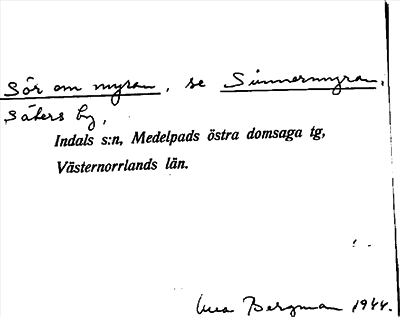 Sör om myran, se Sunnermyran,
Säters by,
Indals s:n, Medelpads östra domsaga tg,
Västernorrlands län.
Bergman 1944.